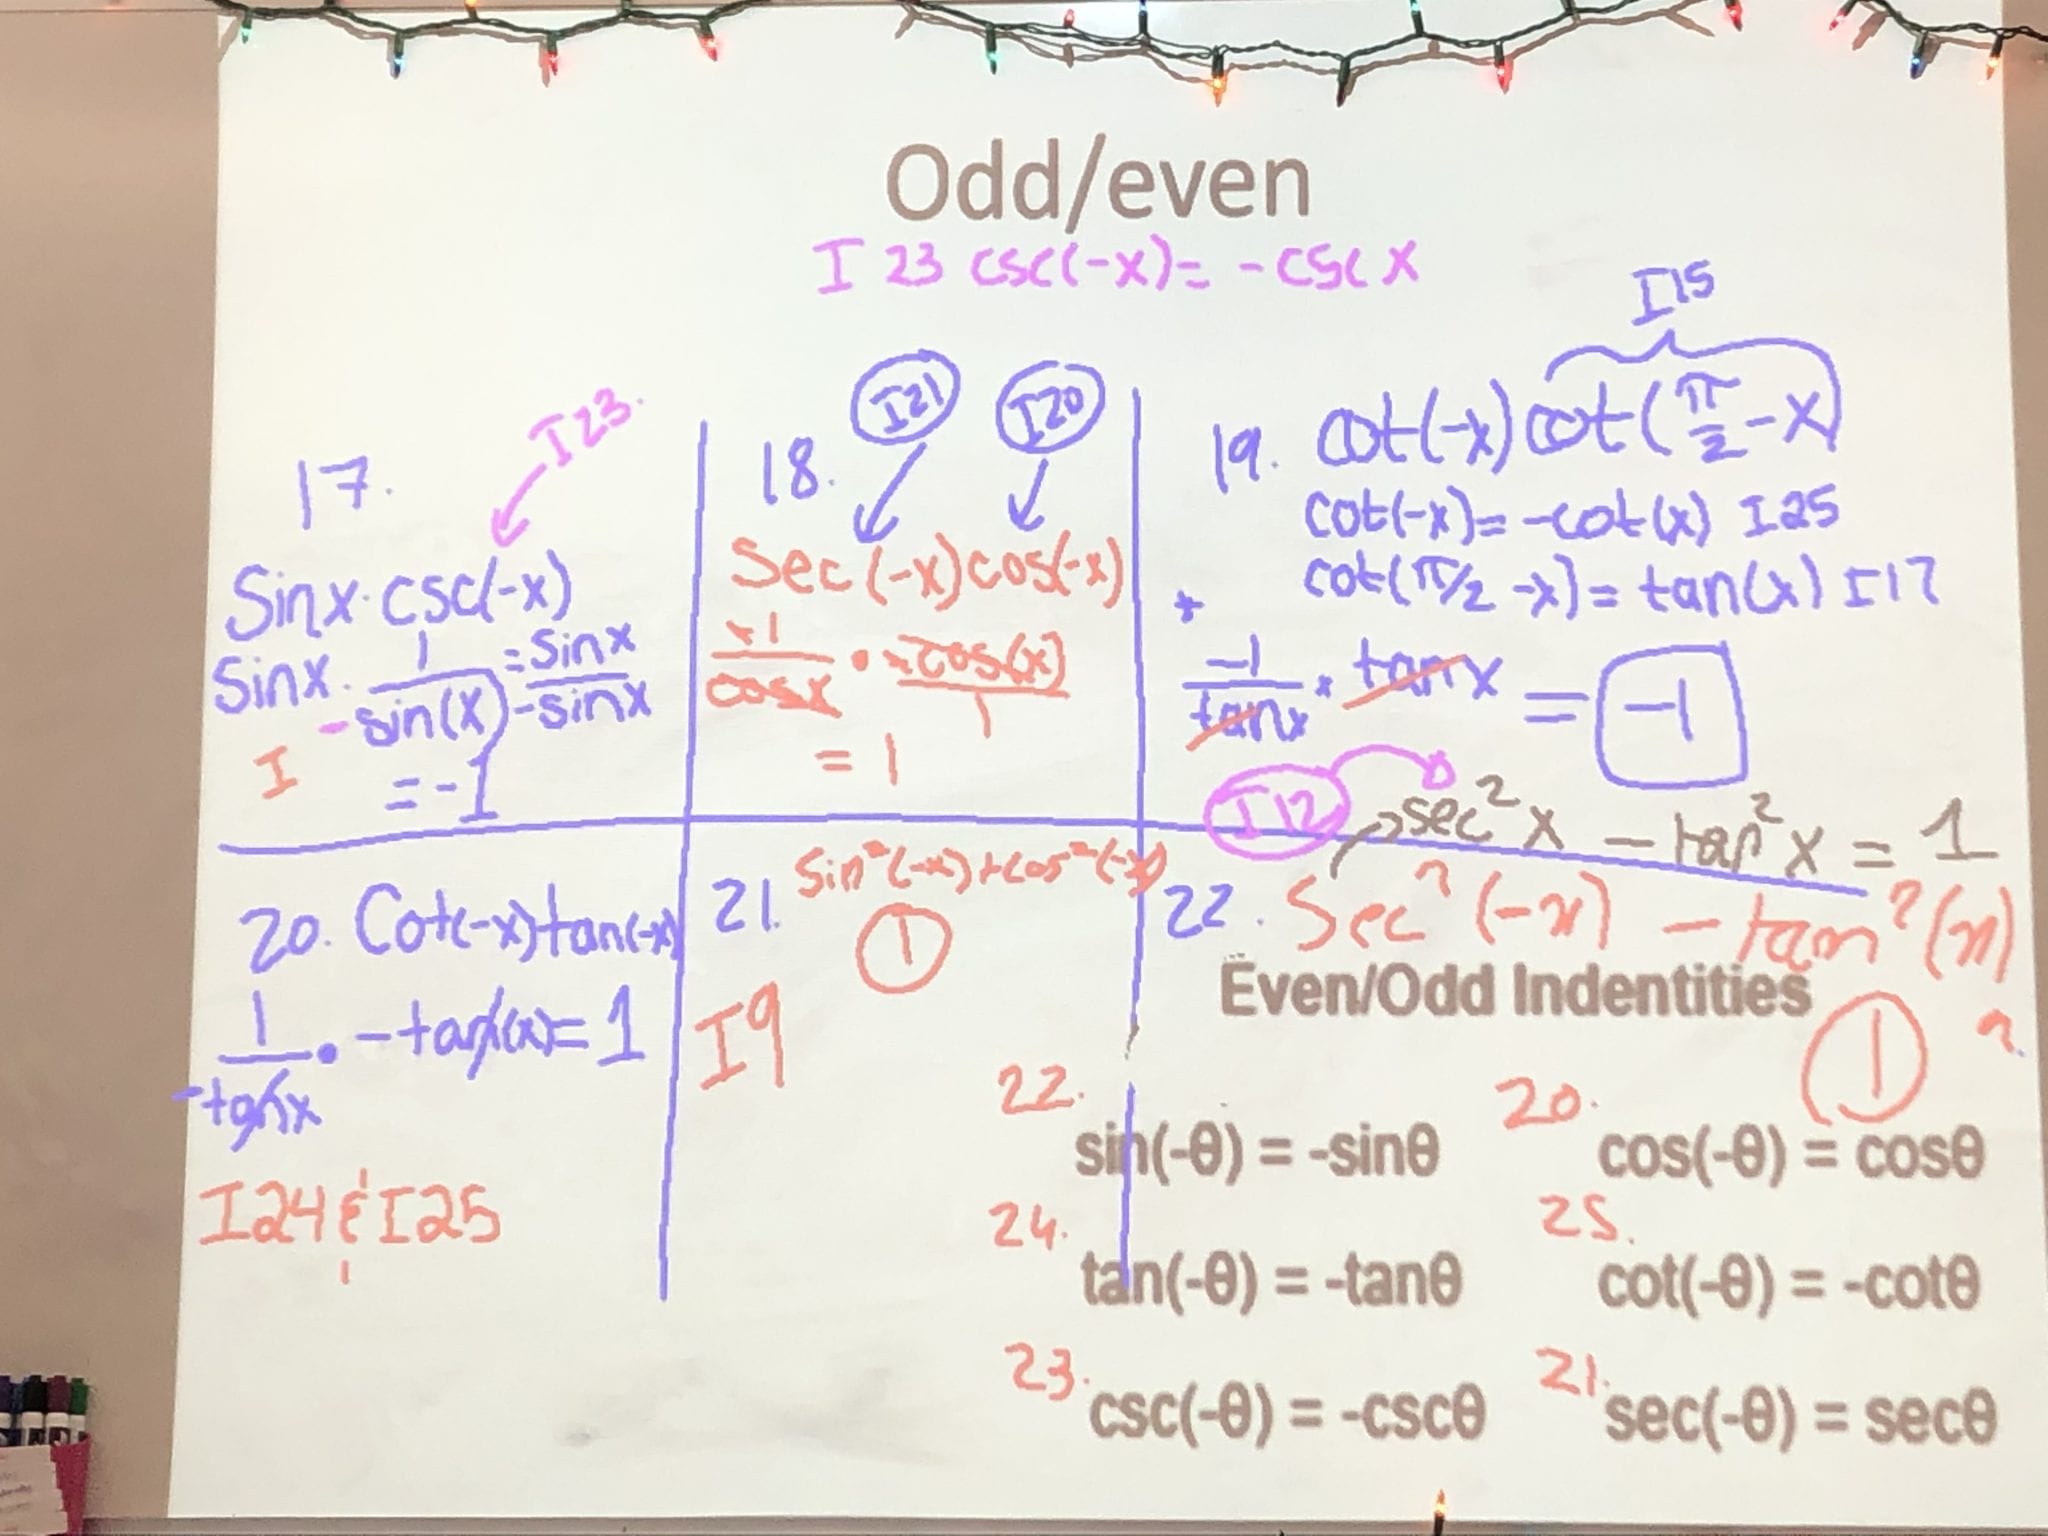 Odd/even
I 23 csc(-x)= -csc x
I23.
17.
Sinx·csc(-x)
Sinx· 1/-sin(x) = sinx/-sinx
I
= -1
I21 I20
18.
Sec(-x)cos(-x)
1/cosx · cos(x)/1
= 1
I15
19. cot(-x)cot(π/2-x)
cot(-x)= -cot(x) I25
cot(π/2 -x)= tan(x) I17
-1/tanx · tanx = -1
I12 sec²x - tan²x = 1
20. Cot(-x)tan(-x)
1/-tanx · -tan(x)= 1
I24 & I25
21. Sin²(-x)+cos²(-x)
1
I9
22. Sec²(-x) - tan²(x)
Even/Odd Indentities
1
22. sin(-θ) = -sinθ
20. cos(-θ) = cosθ
24. tan(-θ) = -tanθ
25. cot(-θ) = -cotθ
23. csc(-θ) = -cscθ
21. sec(-θ) = secθ